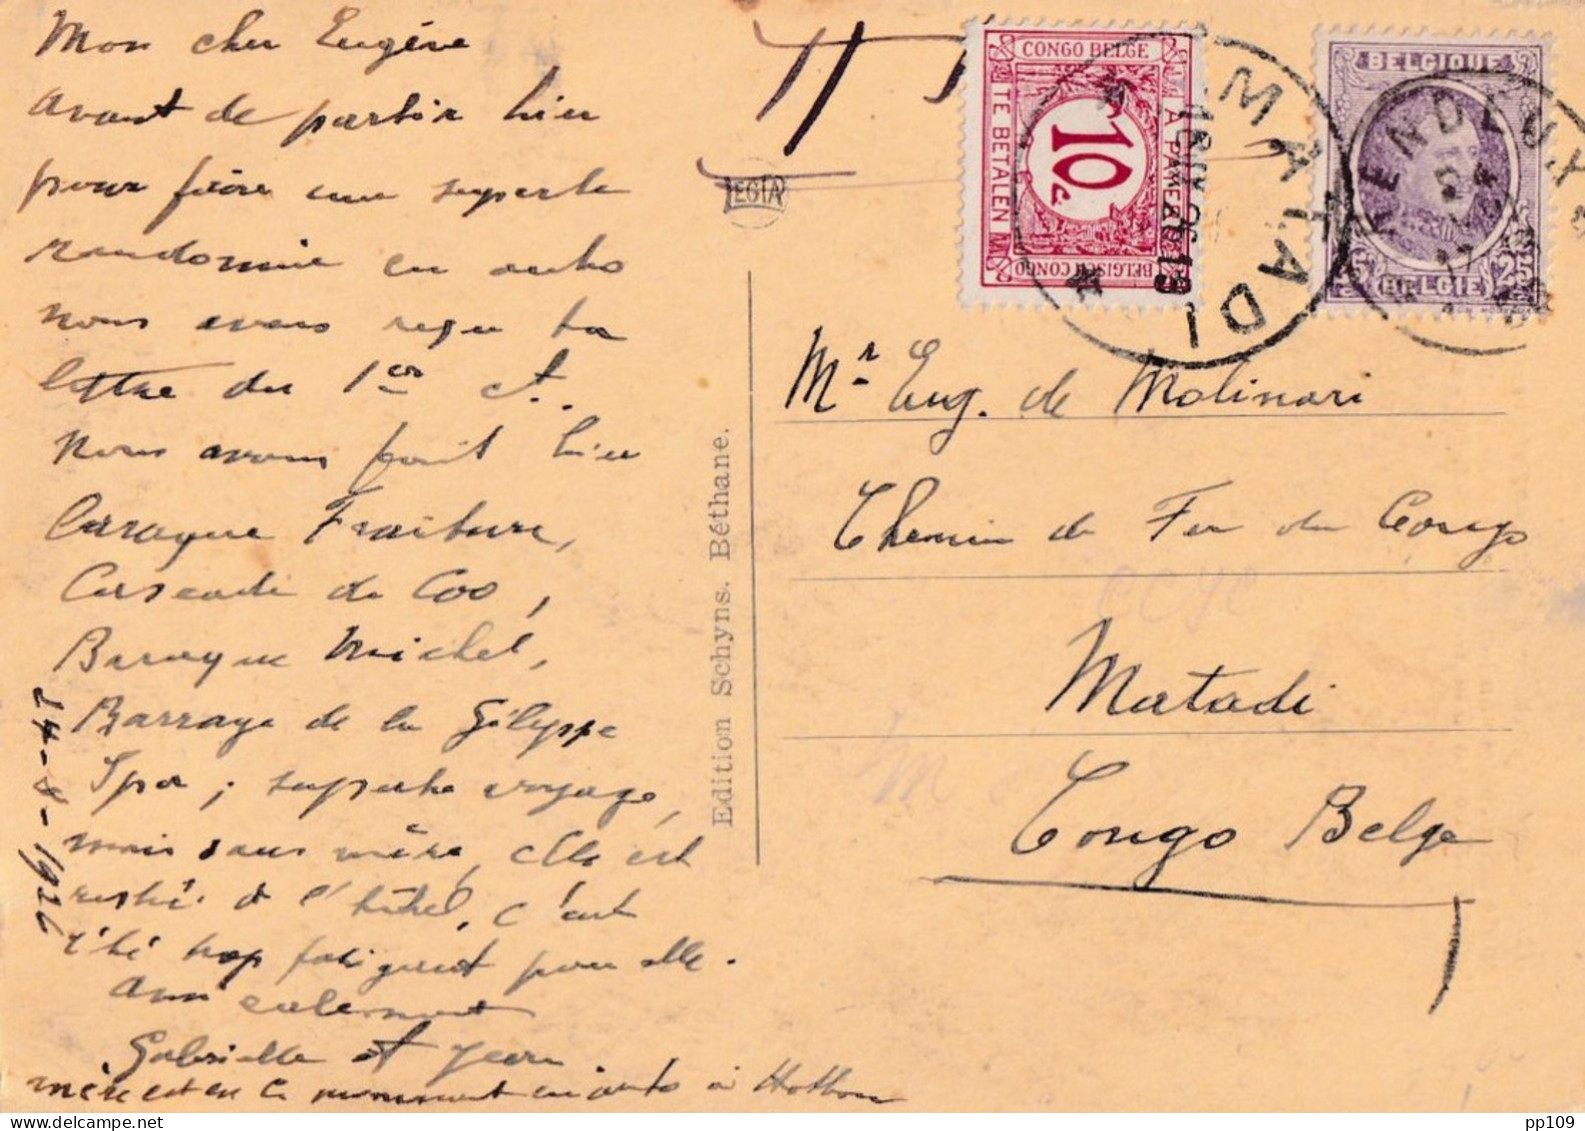 Mon cher Eugène
avant de partir hier
pour faire une superbe
randonnée en auto
nous avons reçu ta
lettre du 1er ct.
Nous avons fait hier
Baraque Fraiture,
Cascade de Coo,
Baraque Michel,
Barrage de la Gileppe
Spa; superbe voyage,
mais sans mère, elle est
restée à l'hôtel, c'eut
été trop fatiguant pour elle.
Amicalement
Gabrielle et Jean
mère est en ce moment en auto à Hotton
24-8-1926
Edition Schyns. Béthane.
LEGIA
T
CONGO BELGE
A PAYER
TE BETALEN
10 c.
BELGISCH CONGO
MATADI
BELGIQUE
BELGIË
RENDEUX
Mr Eug. de Molinari
Chemin de Fer du Congo
Matadi
Congo Belge
pp109